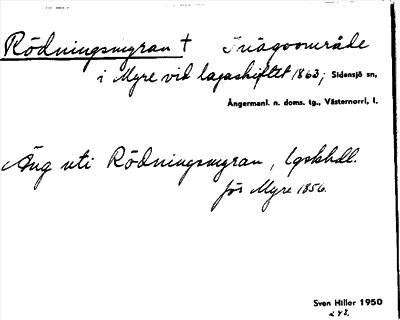 Rödningsmyran † Inägoområde
i Myre vid lagaskiftet 1863; Sidensjö sn,
Ångermanl. n. doms. tg., Västernorrl. l.
Äng uti Rödningsmyran, lgskhdl.
för Myre 1856.
Sven Hiller 1950